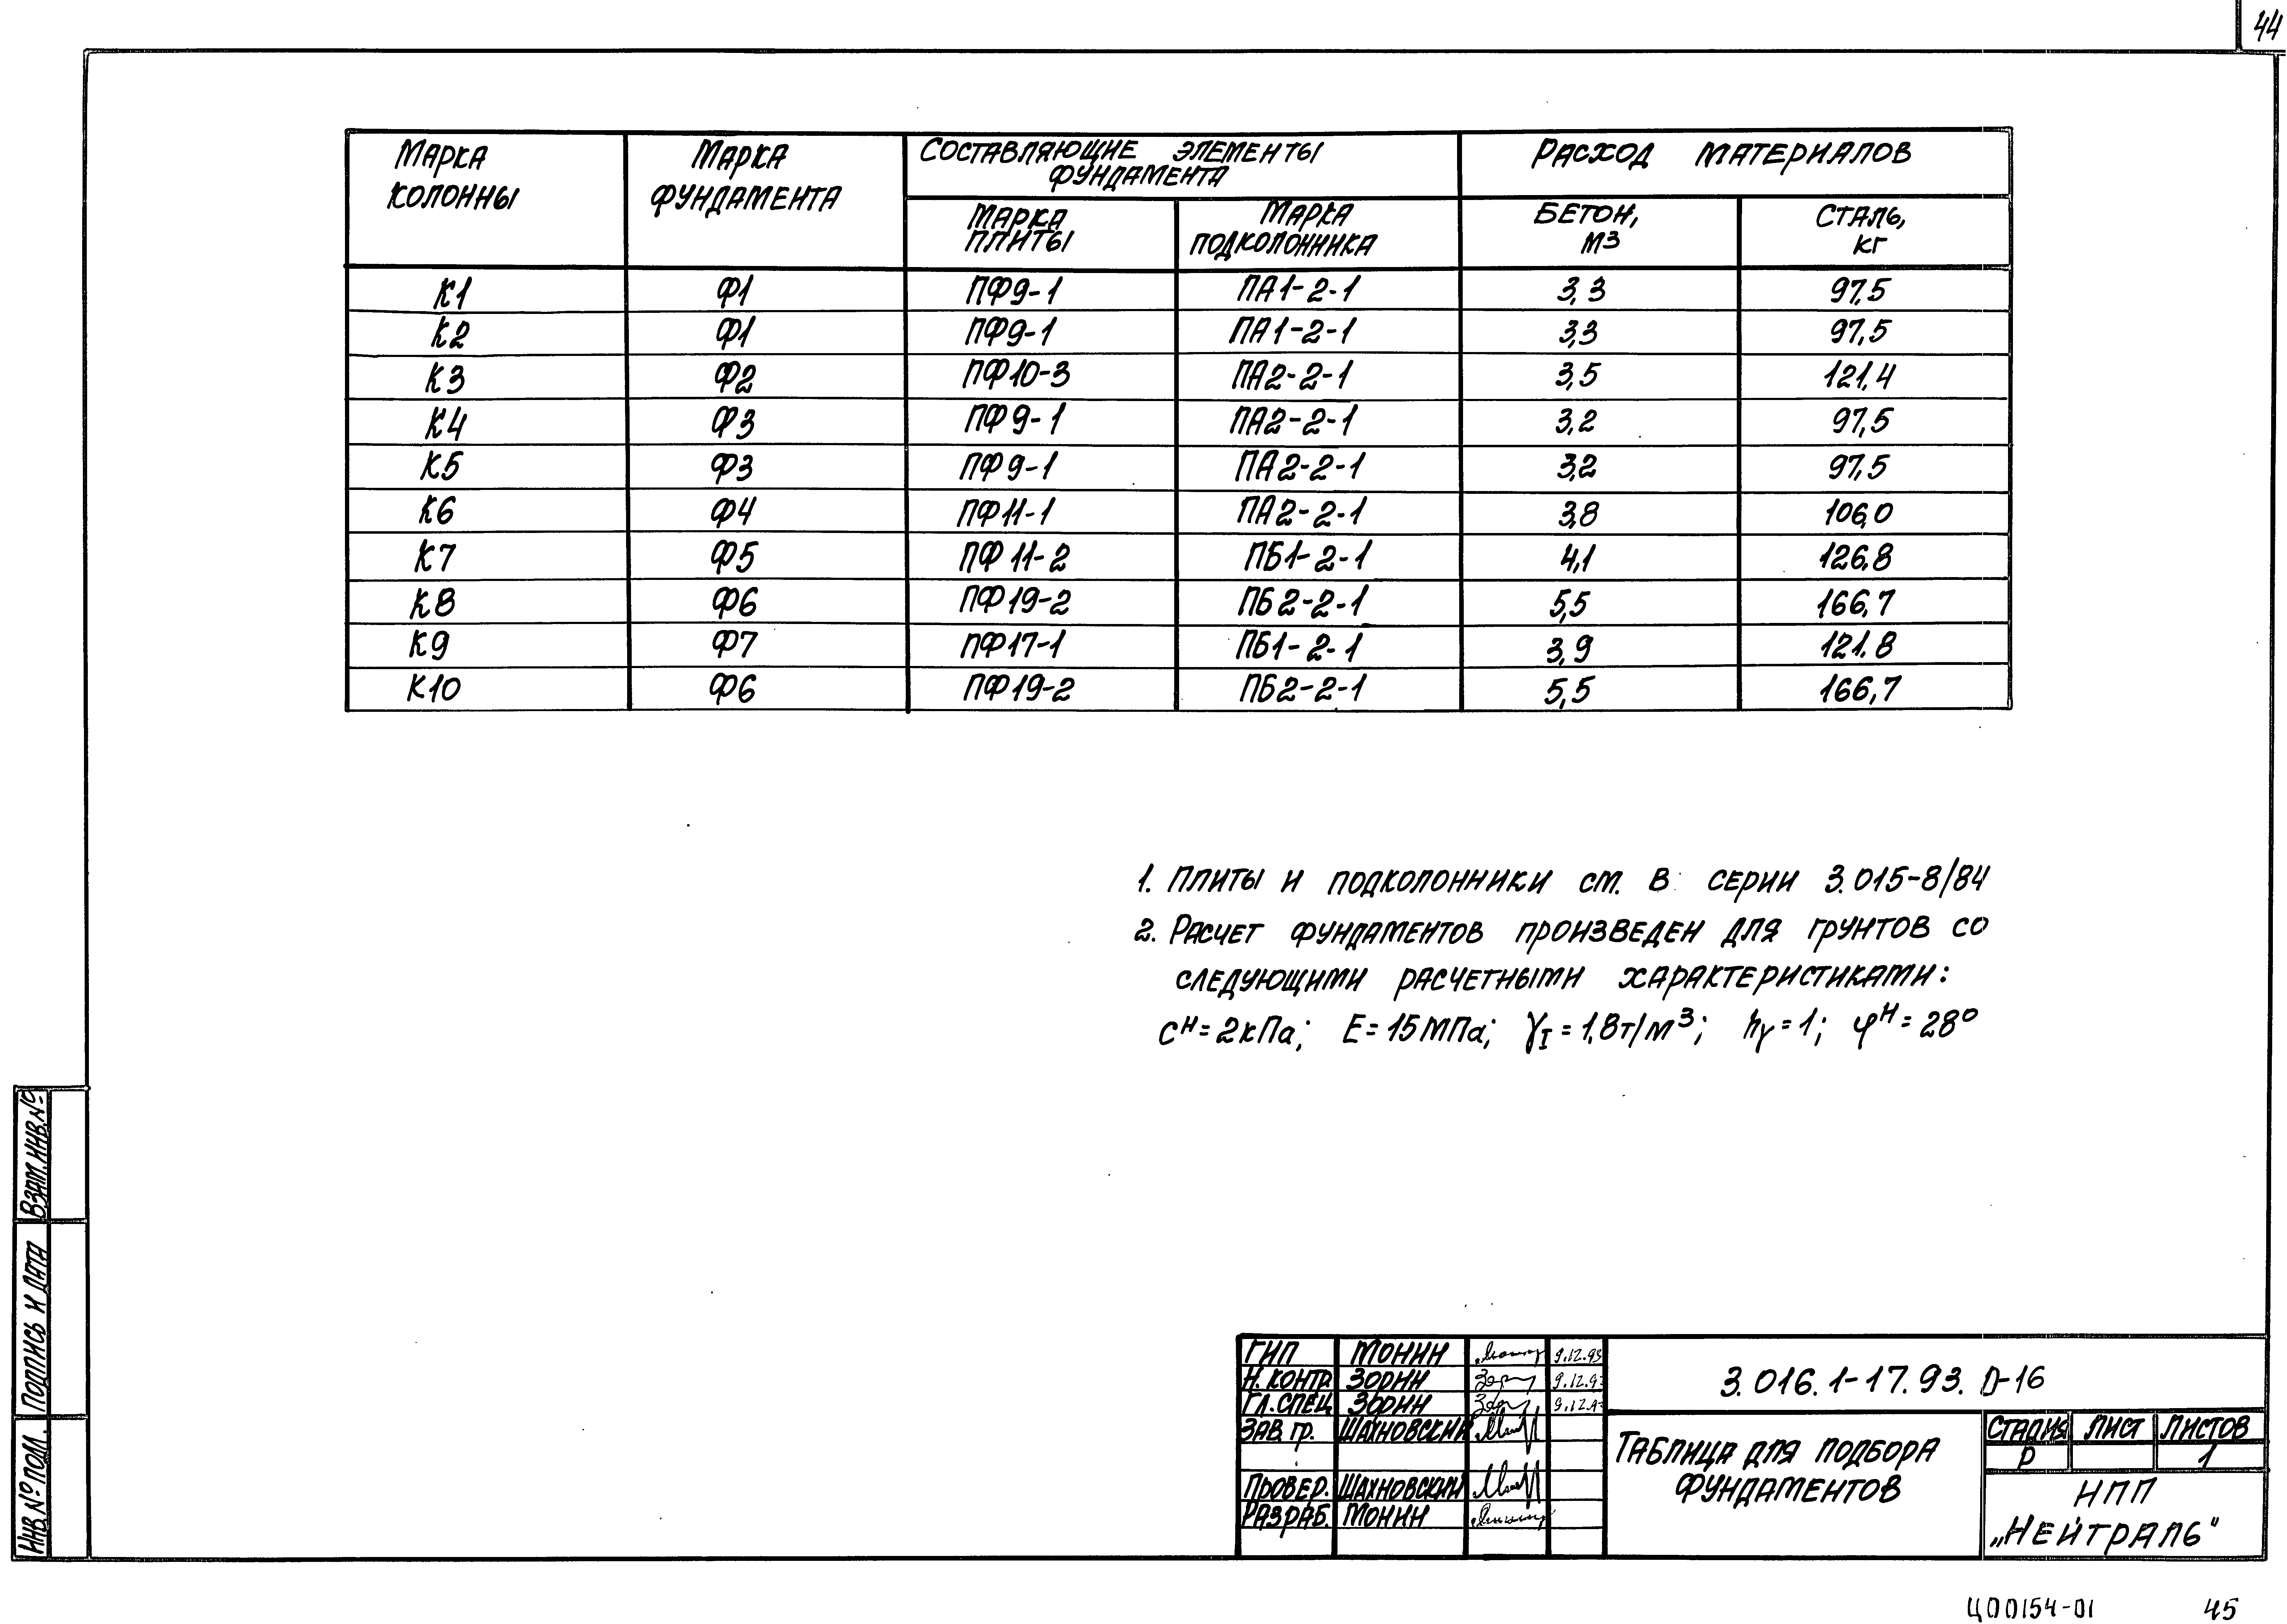 44
МАРКА КОЛОННЫ
МАРКА ФУНДАМЕНТА
СОСТАВЛЯЮЩИЕ ЭЛЕМЕНТЫ ФУНДАМЕНТА
РАСХОД МАТЕРИАЛОВ
МАРКА ПЛИТЫ
МАРКА ПОДКОЛОННИКА
БЕТОН, М3
СТАЛЬ, КГ
К1 Ф1 ПФ9-1 ПА1-2-1 3,3 97,5
К2 Ф1 ПФ9-1 ПА1-2-1 3,3 97,5
К3 Ф2 ПФ10-3 ПА2-2-1 3,5 121,4
К4 Ф3 ПФ9-1 ПА2-2-1 3,2 97,5
К5 Ф3 ПФ9-1 ПА2-2-1 3,2 97,5
К6 Ф4 ПФ11-1 ПА2-2-1 3,8 106,0
К7 Ф5 ПФ11-2 ПБ1-2-1 4,1 126,8
К8 Ф6 ПФ19-2 ПБ2-2-1 5,5 166,7
К9 Ф7 ПФ17-1 ПБ1-2-1 3,9 121.8
К10 Ф6 ПФ19-2 ПБ2-2-1 5,5 166,7
1. ПЛИТЫ И ПОДКОЛОННИКИ СМ. В СЕРИИ 3.015-8/84
2. РАСЧЕТ ФУНДАМЕНТОВ ПРОИЗВЕДЕН ДЛЯ ГРУНТОВ СО
СЛЕДУЮЩИМИ РАСЧЕТНЫМИ ХАРАКТЕРИСТИКАМИ:
Cᴴ=2кПа; E=15МПа; γI=1,8т/м³; hγ=1; φᴴ=28°
ВЗАМ. ИНВ. №
ПОДПИСЬ И ДАТА
ИНВ. № ПОДЛ.
ГИП МОНИН 9.12.93
Н. КОНТР. ЗОРИН 9.12.93
ГЛ. СПЕЦ ЗОРИН 9.12.93
ЗАВ. ГР. ШАХНОВСКИЙ
ПРОВЕР. ШАХНОВСКИЙ
РАЗРАБ. МОНИН
3.016.1-17.93. 0-16
ТАБЛИЦА ДЛЯ ПОДБОРА
ФУНДАМЕНТОВ
СТАДИЯ ЛИСТ ЛИСТОВ
Р 1
НПП
„НЕЙТРАЛЬ"
Ц00154-01 45